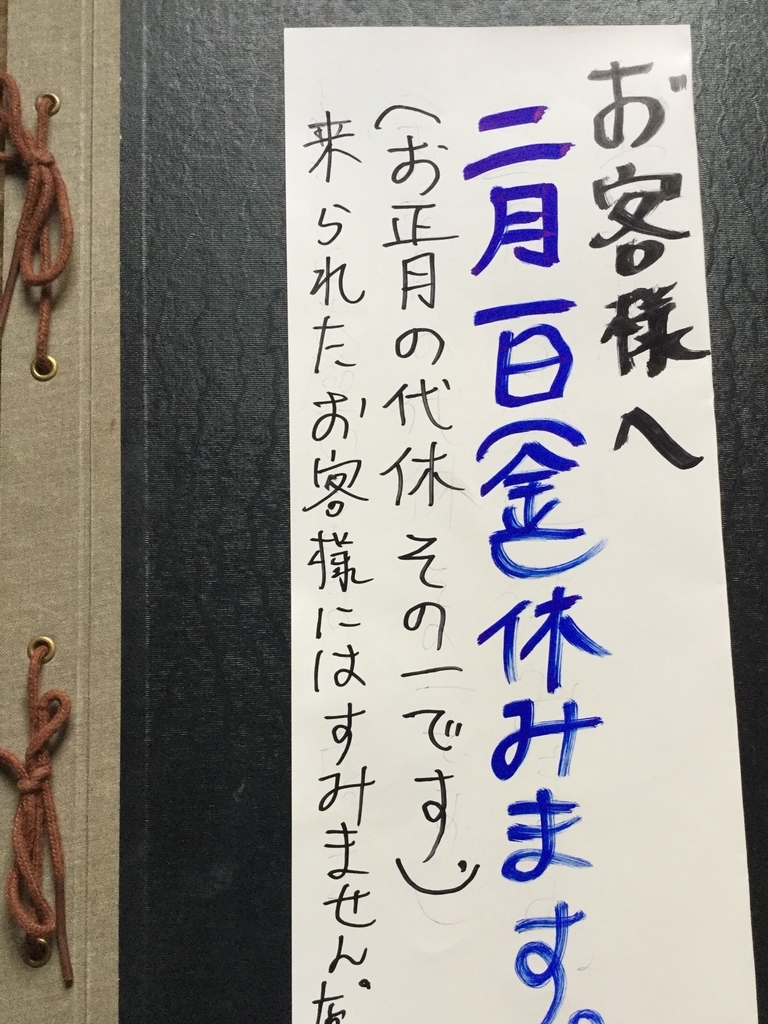 お客様へ
二月一日(金)休みます。
(お正月の代休 その一です。)
来られたお客様にはすみません。